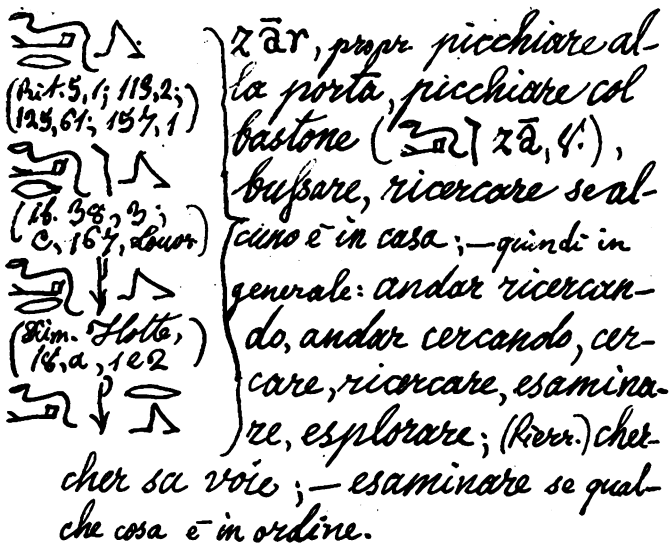 (Rit. 5, 1; 113, 2;
125, 61; 157, 1)
(Ib. 38, 3;
C, 167, Louvr)
(Düm. Flotte,
18, a, 1 e 2)
zār, propr. picchiare al-
la porta, picchiare col
bastone ( zā, V.),
bussare, ricercare se al-
cuno è in casa; — quindi in
generale: andar ricercan-
do, andar cercando, cer-
care, ricercare, esamina-
re, esplorare; (Pierr.) cher-
cher sa voie; — esaminare se qual-
che cosa è in ordine.